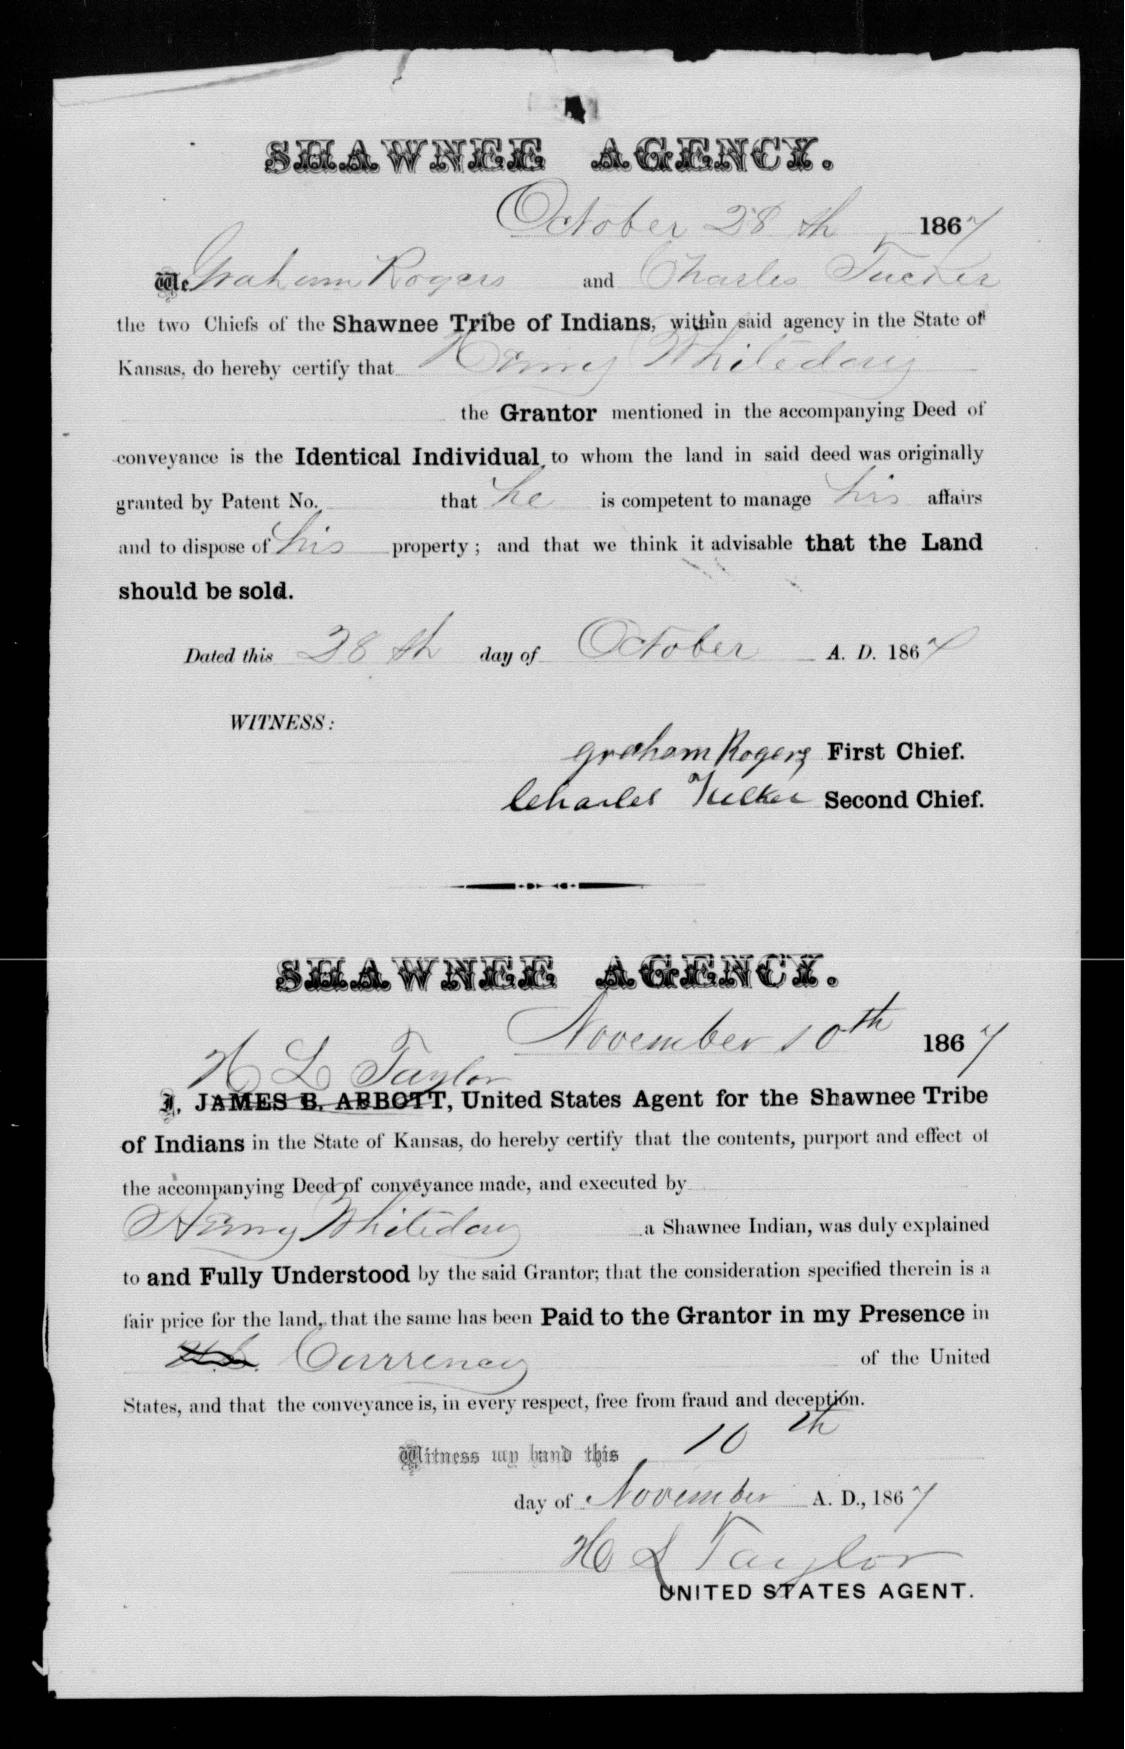 SHAWNEE AGENCY.
October 28th 1867
We Graham Rogers and Charles Tucker
the two Chiefs of the Shawnee Tribe of Indians, within said agency in the State of
Kansas, do hereby certify that Henry Whiteday
the Grantor mentioned in the accompanying Deed of
conveyance is the Identical Individual, to whom the land in said deed was originally
granted by Patent No. that he is competent to manage his affairs
and to dispose of his property; and that we think it advisable that the Land
should be sold.
Dated this 28th day of October A. D. 1867
WITNESS:
Graham Rogers First Chief.
Charles Tucker Second Chief.
SHAWNEE AGENCY.
November 10th 1867
H L Taylor
I, JAMES B. ABBOTT, United States Agent for the Shawnee Tribe
of Indians in the State of Kansas, do hereby certify that the contents, purport and effect of
the accompanying Deed of conveyance made, and executed by
Henry Whiteday a Shawnee Indian, was duly explained
to and Fully Understood by the said Grantor; that the consideration specified therein is a
fair price for the land, that the same has been Paid to the Grantor in my Presence in
Currency of the United
States, and that the conveyance is, in every respect, free from fraud and deception.
Witness my hand this 10th
day of November A. D., 1867
H L Taylor
UNITED STATES AGENT.